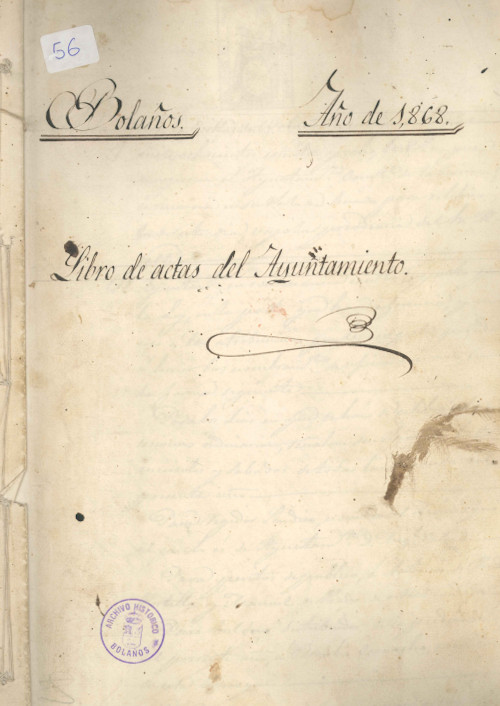 56
Bolaños.
Año de 1,868.
Libro de actas del Ayuntamiento.
ARCHIVO HISTORICO
BOLAÑOS